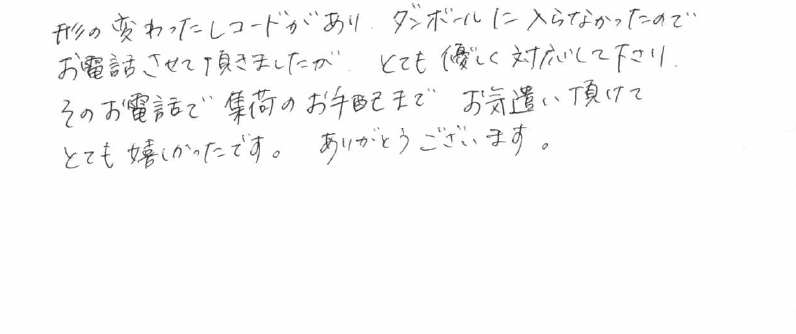 形の変わったレコードがあり、ダンボールに入らなかったので
お電話させて頂きましたが、とても優しく対応して下さり、
そのお電話で集荷のお手配まで お気遣い頂けて
とても嬉しかったです。 ありがとうございます。